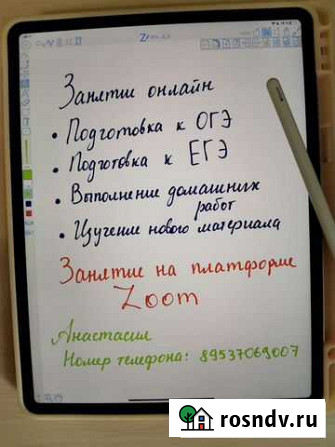 Занятия онлайн
• Подготовка к ОГЭ
• Подготовка к ЕГЭ
• Выполнение домашних
работ
• Изучение нового материала
Занятие на платформе
Zoom
Анастасия
Номер телефона: 89537069007
rosndv.ru